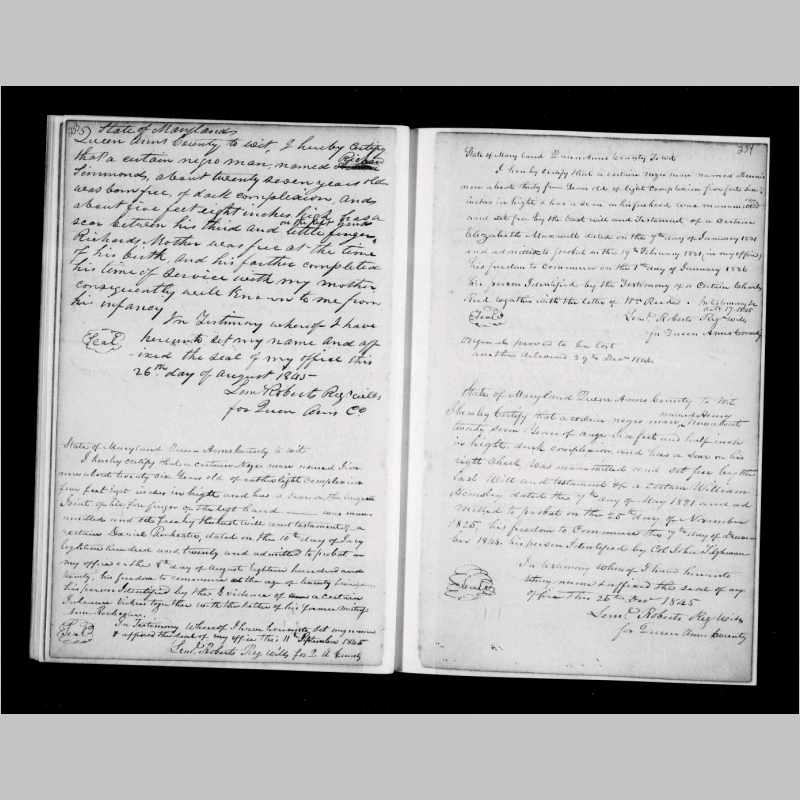 State of Maryland
Queen Anns County, to wit, I hereby certify
that a certain negro man, named Richard
Simmonds, about twenty seven years old
was born free, of dark complexion, and
about five feet eight inches high has a
scar between his third and little finger on the left hand
Richards Mother was free at the time
of his birth and his farther completed
his time of Service with my mother
consequently well known to me from
his infancy
In Testimony whereof I have
Seal hereunto set my name and aff
ixed the seal of my office this
26th day of august 1845
Lem. Roberts Reg. wills
for Queen Anns Co.
State of Maryland Queen Anns County to wit
I hereby certify that a certain Negro man named
now about twenty six Years old of rather light Complexion
five feet eight inches in hight and has a scar on the
Joint of his fore finger of the left hand was manu
mitted and set free by the last will and testament of a
certain Daniel dated on the 10th day of
Eighteen hundred and twenty and admitted to probat in
my office on the 8th day of August Eighteen hundred and
twenty, his freedom to commence at the age of twenty
his person Identified by the Evidence of a certain
together with the letter of his former
In Testimony Whereof I have hereunto set my name
Seal & affixed the seal of my office this 11th September 1845
Leml. Roberts Reg Wills for Q A County
334
State of Maryland Queen Anns County To wit
I hereby certify that a certain negro man named
now about thirty five Years old of light complexion five feet
inches in hight & has a scar in his forehead was manumitted
and set free by the last will and Testament of a certain
Elizabeth Maxwell dated on the 9th day of January 1821
and admitted to probat on the 19th February 1821 in my office
his freedom to commence on the 1st day of January 1826
his person Identified by the Testimony of a Certain Charles
together with the letter of Wm In testimony &c
Seal 17. 1845
Leml. Roberts Reg Wills
for Queen Anns County
Original proved to be lost
another delivered 29th Decr.
State of Maryland Queen Anns County to wit
I hereby Certify that a certain negro man named Henry now about
twenty seven Years of age five feet and half inch
in hight dark complexion and has a scar on his
right Cheek was manumitted and set free by the
last Will and testament of a certain William
dated the 7th day of May 1821 and ad
mitted to probat on the 25th day of November
1825, his freedom to Commence the 7th day of
his person Identified by Col John Tilghman
In testimony Whereof I have hereunto
Seal set my name & affixed the seal of my
office this 26th Decr 1845
Leml. Roberts Reg Wills
for Queen Anns County